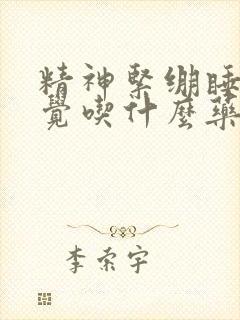 精神緊绷睡
覺喫什麼藥
李索宇